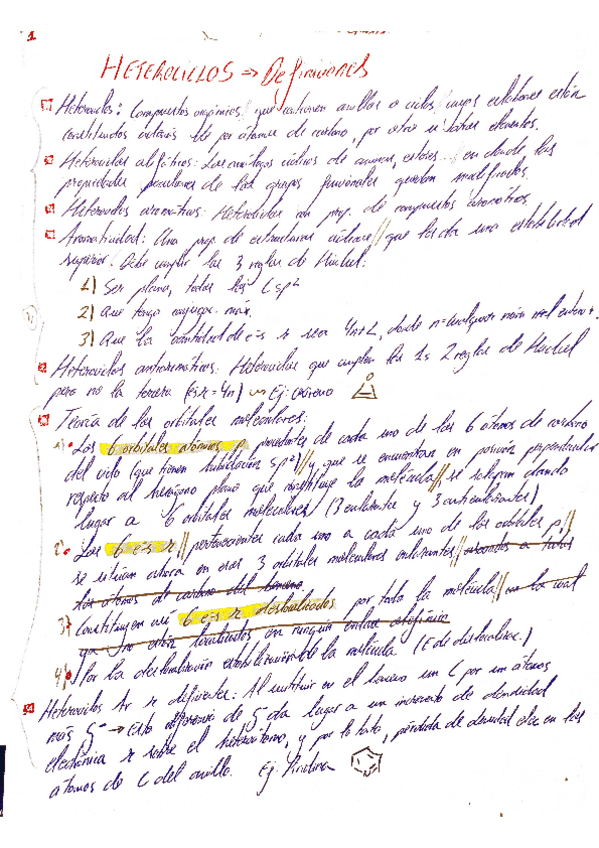 1
HETEROCICLOS => Definiciones
Heterociclos: Compuestos orgánicos que contienen anillos o ciclos cuyos eslabones están
constituidos además de por átomos de carbono, por otros u otros elementos.
Heterociclos alifáticos: Los análogos cíclicos de aminas, éteres... en donde las
propiedades peculiares de los grupos funcionales quedan modificadas.
Heterociclos aromáticos: Heterociclos con prop. de compuestos aromáticos.
Aromaticidad: Una prop. de estructuras cíclicas // que les da una estabilidad
superior. Debe cumplir las 3 reglas de Hückel:
1) Ser plana, todos los C sp²
2) Que tenga conjugac. máx.
3) Que la cantidad de e-s π sea 4n+2, donde n = cualquier núm nat entero +.
Heterociclos antiaromáticos: Heterociclos que cumplen las 1ª 2 reglas de Hückel
pero no la tercera (e-s π = 4n) Ej: oxireno
Teoría de los orbitales moleculares:
1) Los 6 orbitales atómicos p procedentes de cada uno de los 6 átomos de carbono
del ciclo (que tienen hibridación sp²) // y que se encuentran en posición perpendicular
respecto al hexágono plano que constituye la molécula // se solapan dando
lugar a 6 orbitales moleculares (3 enlazantes y 3 antienlazantes)
2) Los 6 e-s π // pertenecientes cada uno a cada uno de los orbitales p, //
se sitúan ahora en esos 3 orbitales moleculares enlazantes // asociados a todos
los átomos de carbono del benceno
3) Constituyen así 6 e-s π deslocalizados por toda la molécula // en la cual
ya no están localizados en ningún enlace
4) Por la deslocalización estabilización de la molécula (E de deslocalizac.)
Heterociclos Ar π deficientes: Al sustituir en el benceno un C por un átomo
más δ- → esta diferencia de δ- da lugar a un incremento de densidad
electrónica π sobre el heteroátomo, y por lo tanto, pérdida de densidad elec en los
átomos de C del anillo. Ej: Piridina